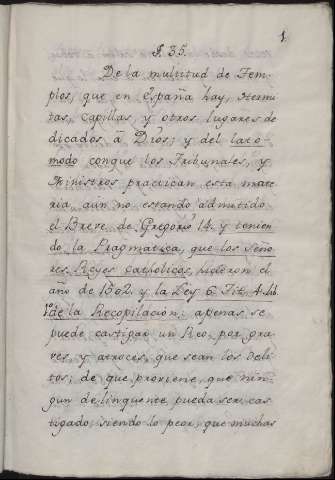 1.
§. 35.
De la multitud de Tem-
plos, que en España hay, Hermi-
tas, Capillas, y otros lugares de-
dicados â Dios; y del lato-
modo con que los Tribunales, y
Ministros practican esta mate-
ria, aun no estando admitido
el Breve de Gregorio 14. y tenien-
do la Pragmatica, que los Seño-
res Reyes Catholicos, hicieron el
año de 1502. y la Ley 6. Tit. 4. Lib.
1º de la Recopilacion: apenas se
puede castigar un Reo, por gra-
ves, y atroces, que sean los deli-
tos; de que proviene, que nin-
gun delinquente pueda ser cas-
tigado, siendo lo peor, que muchas